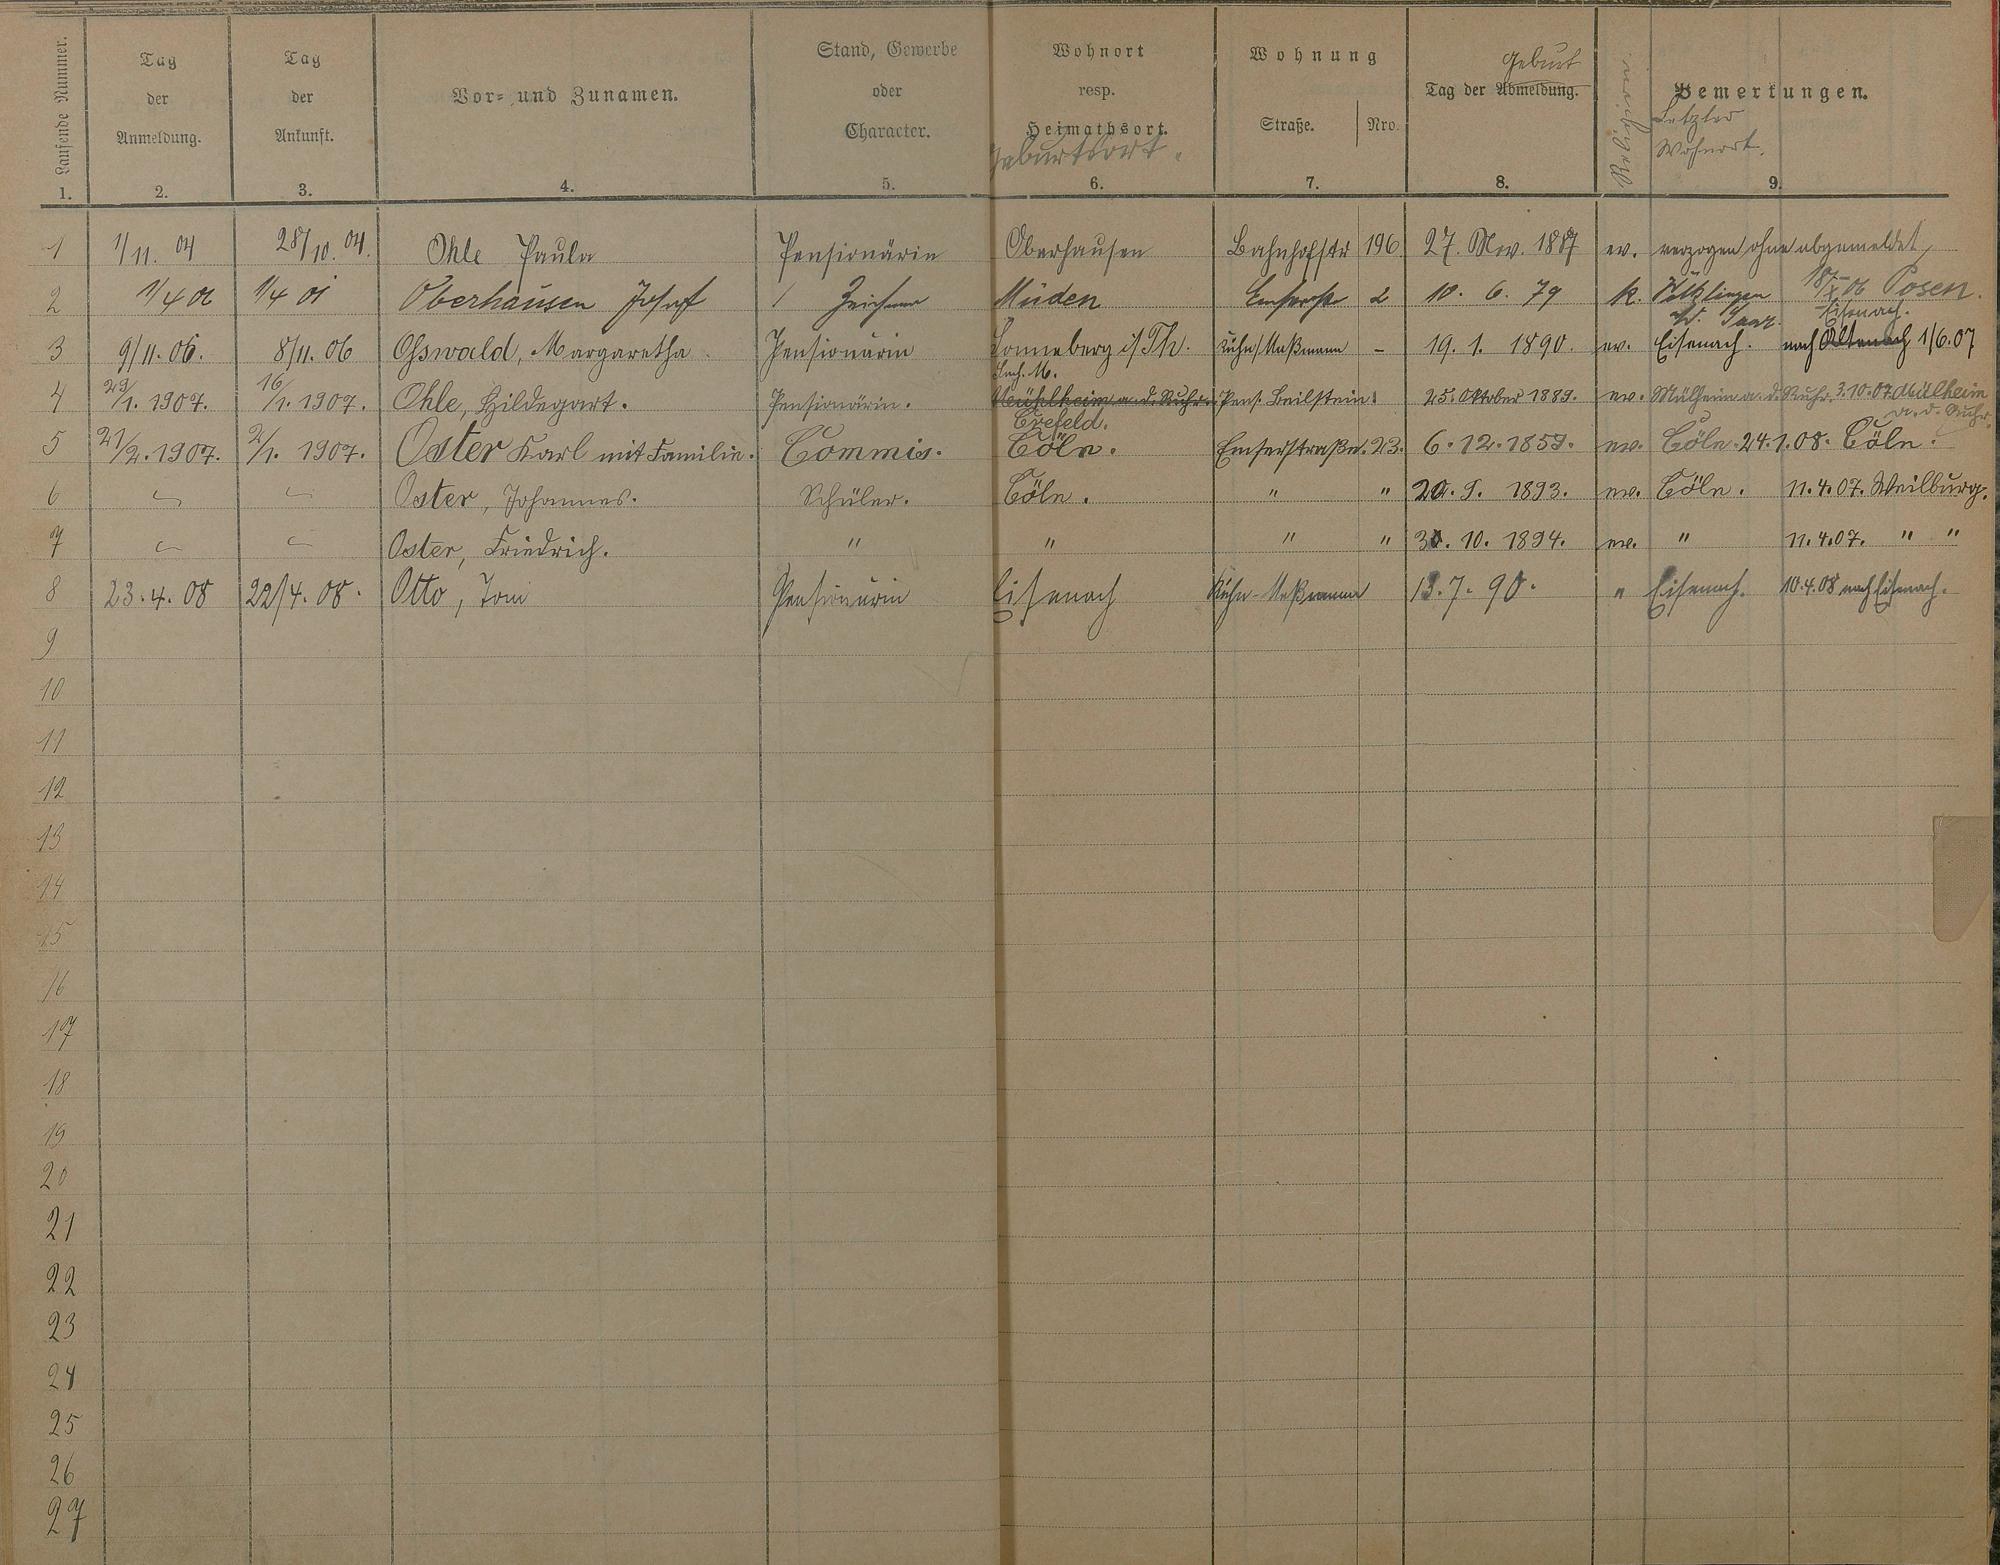 Laufende Nummer. Tag Tag Vor- und Zunamen. Stand, Gewerbe Wohnort Wohnung Tag der Abmeldung. Geburt Religion Bemerkungen.
der der oder resp. Straße. Nro. Letzter
Anmeldung. Ankunft. Character. Heimathsort. Wohnort.
Geburtsort.
1. 2. 3. 4. 5. 6. 7. 8. 9.
1 1/11. 04 28/10. 04. Ohle Paula Pensionärin Oberhausen Bahnhofstr 196 27. Nov. 1887 ev. verzogen ohne abgemeldet
2 1/4 06 1/4 01 Oberhausen Josef Zeichner Müden Emserstraße 2 10. 6. 79 k. Völklingen 18/X 06 Posen.
a/d. Saar. Eisenach.
3 9/11. 06. 8/11. 06 Osswald, Margaretha Pensionärin Sonneberg i/Th. Kuhn/Maßmann - 19. 1. 1890. ev. Eisenach. nach Altenach 1/6.07
Sach. M.
4 29/1. 1907. 16/1. 1907. Ohle, Hildegart. Pensionärin. Mühlheim a. d. Ruhr. Pens. Beilstein. 25. Oktober 1889. ev. Mülheim a. d. Ruhr. 3.10.07. Mülheim
Crefeld. a. d. Ruhr.
5 21/2. 1907. 2/1. 1907. Oster Karl mit Familie. Commis. Cöln. Emserstraße. 23. 6. 12. 1859. ev. Cöln. 24.1.08. Cöln.
6 Oster, Johannes. Schüler. Cöln. " " 20. 9. 1893. ev. Cöln. 11. 4. 07. Weilburg.
7 Oster, Friedrich. " " " " 30. 10. 1894. ev. " 11. 4. 07. " "
8 23. 4. 08 22/4. 08. Otto, Toni Pensionärin Eisenach Kuhn-Maßmann 13. 7. 90. " Eisenach. 10.4.08 nach Eisenach.
9
10
11
12
13
14
15
16
17
18
19
20
21
22
23
24
25
26
27